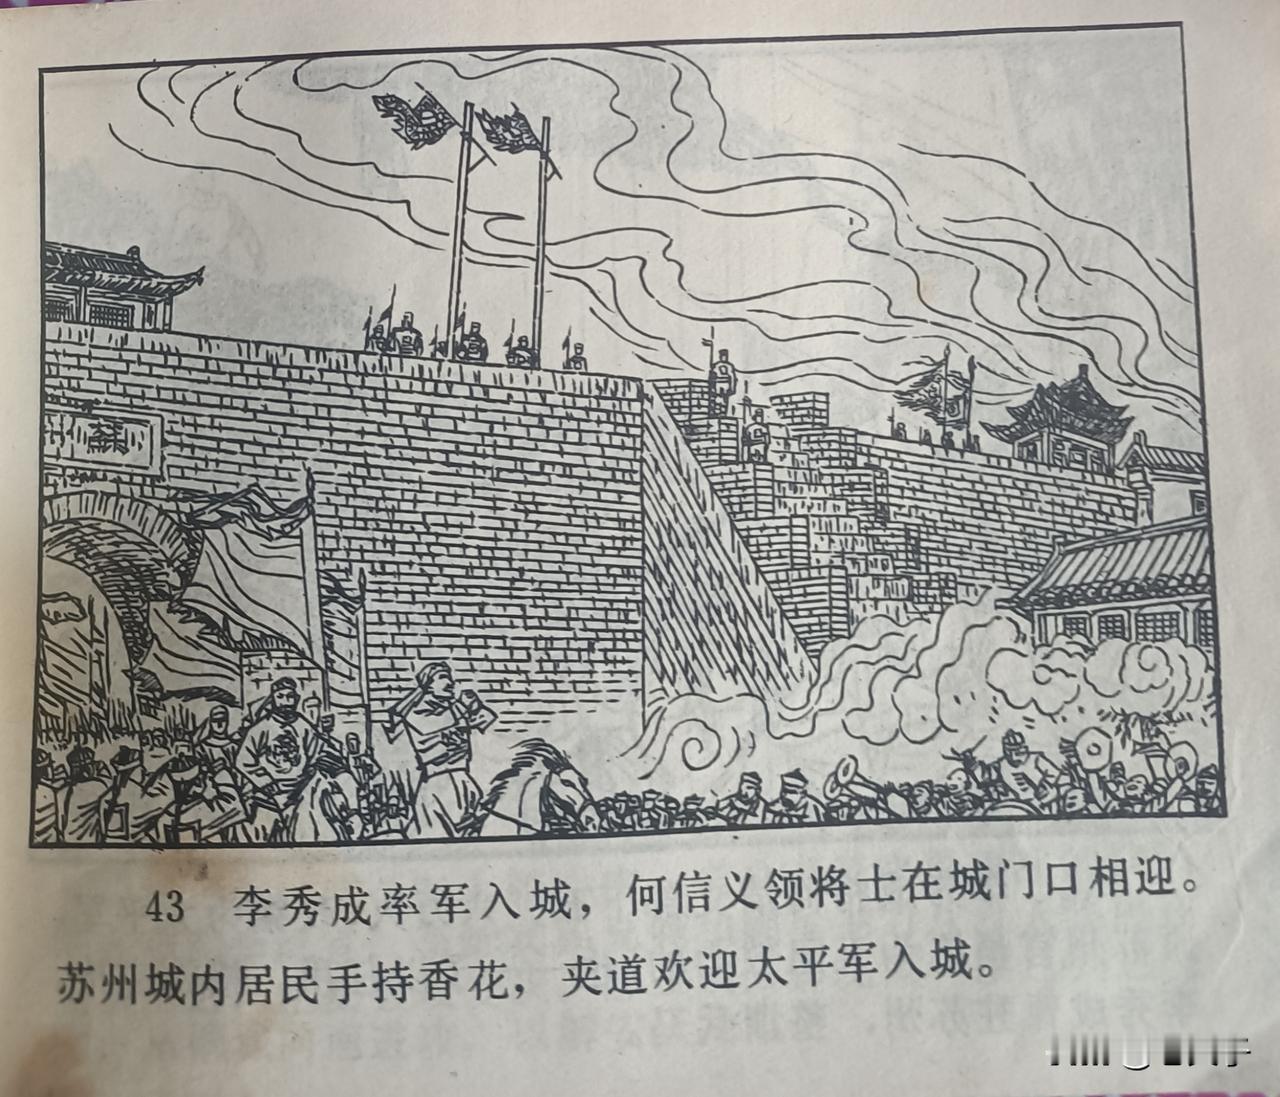 蘇
43 李秀成率军入城，何信义领将士在城门口相迎。
苏州城内居民手持香花，夹道欢迎太平军入城。